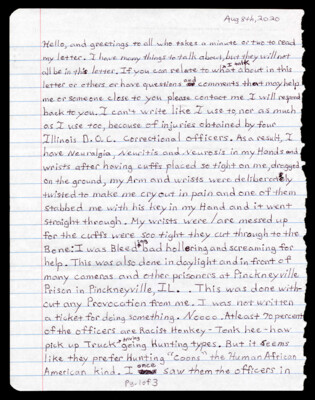 Aug 8th, 2020
Hello, and greetings to all who takes a minute or two to read
my letter. I have many things to talk about, but they will not
all be in this letter. If you can relate to what I talk about in this
letter or others or have questions and comments that may help
me or someone close to you please contact me I will respond
back to you. I can't write like I use to nor as much
as I use too, because of injuries obtained by four
Illinois D.O.C. Correctional officers. As a result, I
have Neuralgia, Neuritis and Neurosis in my Hands and
wrists after having cuffs placed so tight on me, dragged
on the ground, my Arm and wrists were deliberately
twisted to make me cry out in pain and one of them
stabbed me with his Key in my Hand and it went
straight through. My wrists were/are messed up
for the cuffs were soo tight they cut through to the
Bone: I was Bleeding bad hollering and screaming for
help. This was also done in daylight and in front of
many cameras and other prisoners at Pinckneyville
Prison in Pinckneyville, IL. . This was done with-
out any Provocation from me. I was not written
a ticket for doing something. Noooo. Atleast 70 percent
of the officers are Racist Honkey-Tonk hee-haw
pick up Truck driving Hunting types. But it seems
like they prefer Hunting "Coons" the Human African
American kind. I once saw them the officers in
Pg. 1 of 3